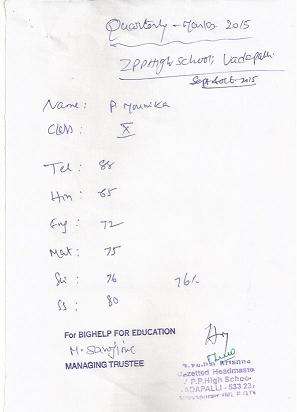 Quarterly - Marks 2015
ZPPHigh School, Vadapalli
Sept & Oct 2015
Name : P Mounika
Class : X
Tel : 88
Hin : 65
Eng : 72
Mat : 75
Sci : 76 76%
SS : 80
For BIGHELP FOR EDUCATION
MANAGING TRUSTEE
Gazetted Headmaste
P.P.High Schoo
ADAPALLI - 533 23